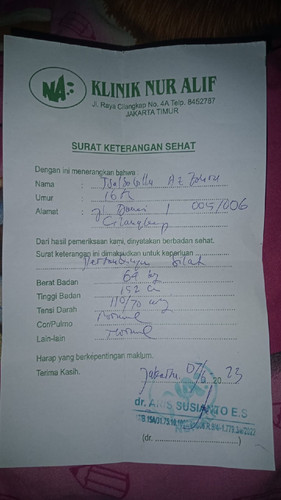 NA
KLINIK NUR ALIF
Jl. Raya Cilangkap No. 4A Telp. 8452787
JAKARTA TIMUR
SURAT KETERANGAN SEHAT
Dengan ini menerangkan bahwa
Nama : Az Zahra
Umur : 16 th
Alamat : jl 1 005/006
Cilangkap
Dari hasil pemeriksaan kami, dinyatakan berbadan sehat.
Surat keterangan ini dimaksudkan untuk keperluan :
Pertandingan Silat
Berat Badan : 64 kg
Tinggi Badan : 152 cm
Tensi Darah : 110/70
Cor/Pulmo : Normal
Lain-lain : Normal
Harap yang berkepentingan maklum.
Terima Kasih.
Jakarta, 2023
dr. ARIS SUSIANTO E.S
(dr. )